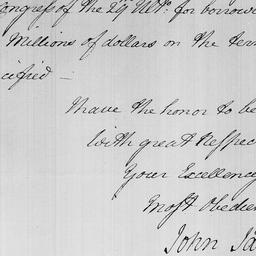 Congress of the 29 Ult: for borrowi
Millions of dollars on the ter
cified —
I have the honor to be
With great Respec
Your Excellency
Most Obedien
John Ja